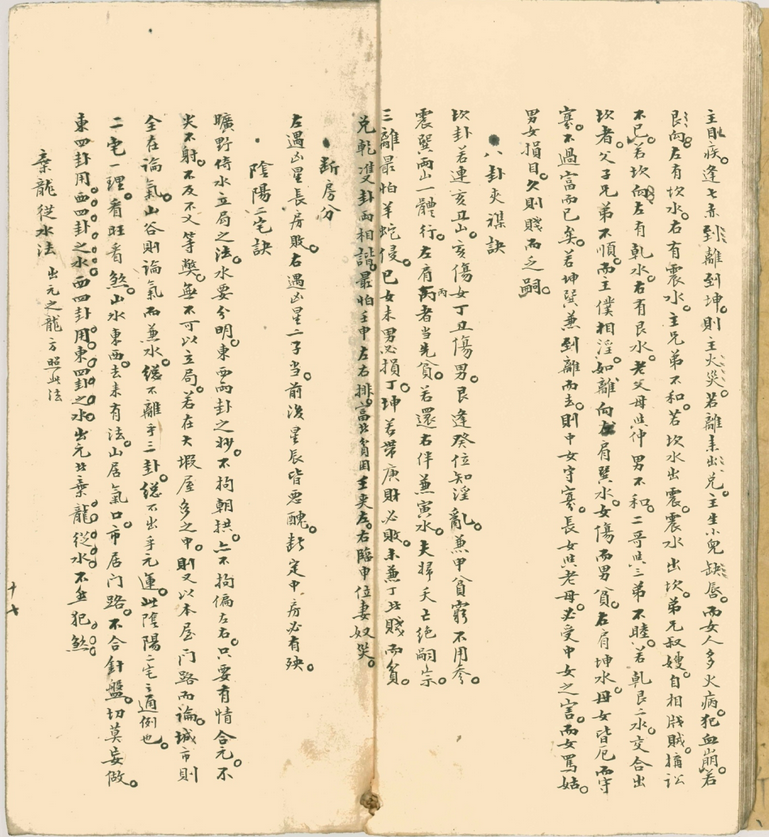 主眼疾。逢七赤到離到坤。則主火災。若離來出兌。主生小兒缺唇。而女人多火病。犯血崩。若
艮向。左有坎水。右有震水。主兄弟不和。若坎水出震。震水出坎。弟兄叔嫂。自相戕賊。搆訟
不已。若坎向。左有乾水。右有艮水。老父母與仲男不和。二哥與三弟不睦。若乾艮二水。交合出
坎者。父子兄弟不順。而主僕相淫。如離向。肩巽水。女傷而男貧。右肩坤水。母女皆厄而守
寡。不過富而已矣。若坤巽兼到離而去。則中女守寡。長女與老母。必受中女之害。而女罵姑。
男女損目。久則賤而乏嗣。
八卦夾雜訣
坎卦若連亥丑山。亥傷女丁丑傷男。艮逢癸位知淫亂。兼甲貧窮不用參。
震巽兩山一體行。左肩丙者當先貧。若還右伴兼寅水。夫婦夭亡絕嗣宗。
三離最怕羊蛇侵。巳女未男必損丁。坤若帶庚財必敗。未兼丁丑賤而貧。
兌乾雙卦兩相諧。最怕壬申左右排。富比貧因壬夾左。右臨申位妻奴災。
斷房分
左遇凶星長房敗。右遇凶星二子當。前後星辰皆惡醜。斷定中房必有殃。
陰陽二宅訣
曠野倚水立局之法。水要分明。東西兩卦之妙。不拘朝拱。亦不拘偏左右。只要有情合元。不
尖不射。不反不叉等弊。無不可以立局。若在大塅屋多之中。則又以本屋門路而論。城市則
全在論氣。山谷則論氣而兼水。總不離乎三卦。總不出乎元運。此陰陽二宅之通例也。
二宅一理。看旺看煞。山水東西。去來有法。山居氣口。市居门路。不合針盤。切莫妄做。
東四卦用西四卦之水。西四卦用東四卦之水。出元北乘龍從水不無犯煞。
乘龍從水法
出元之龍方照此法
十七